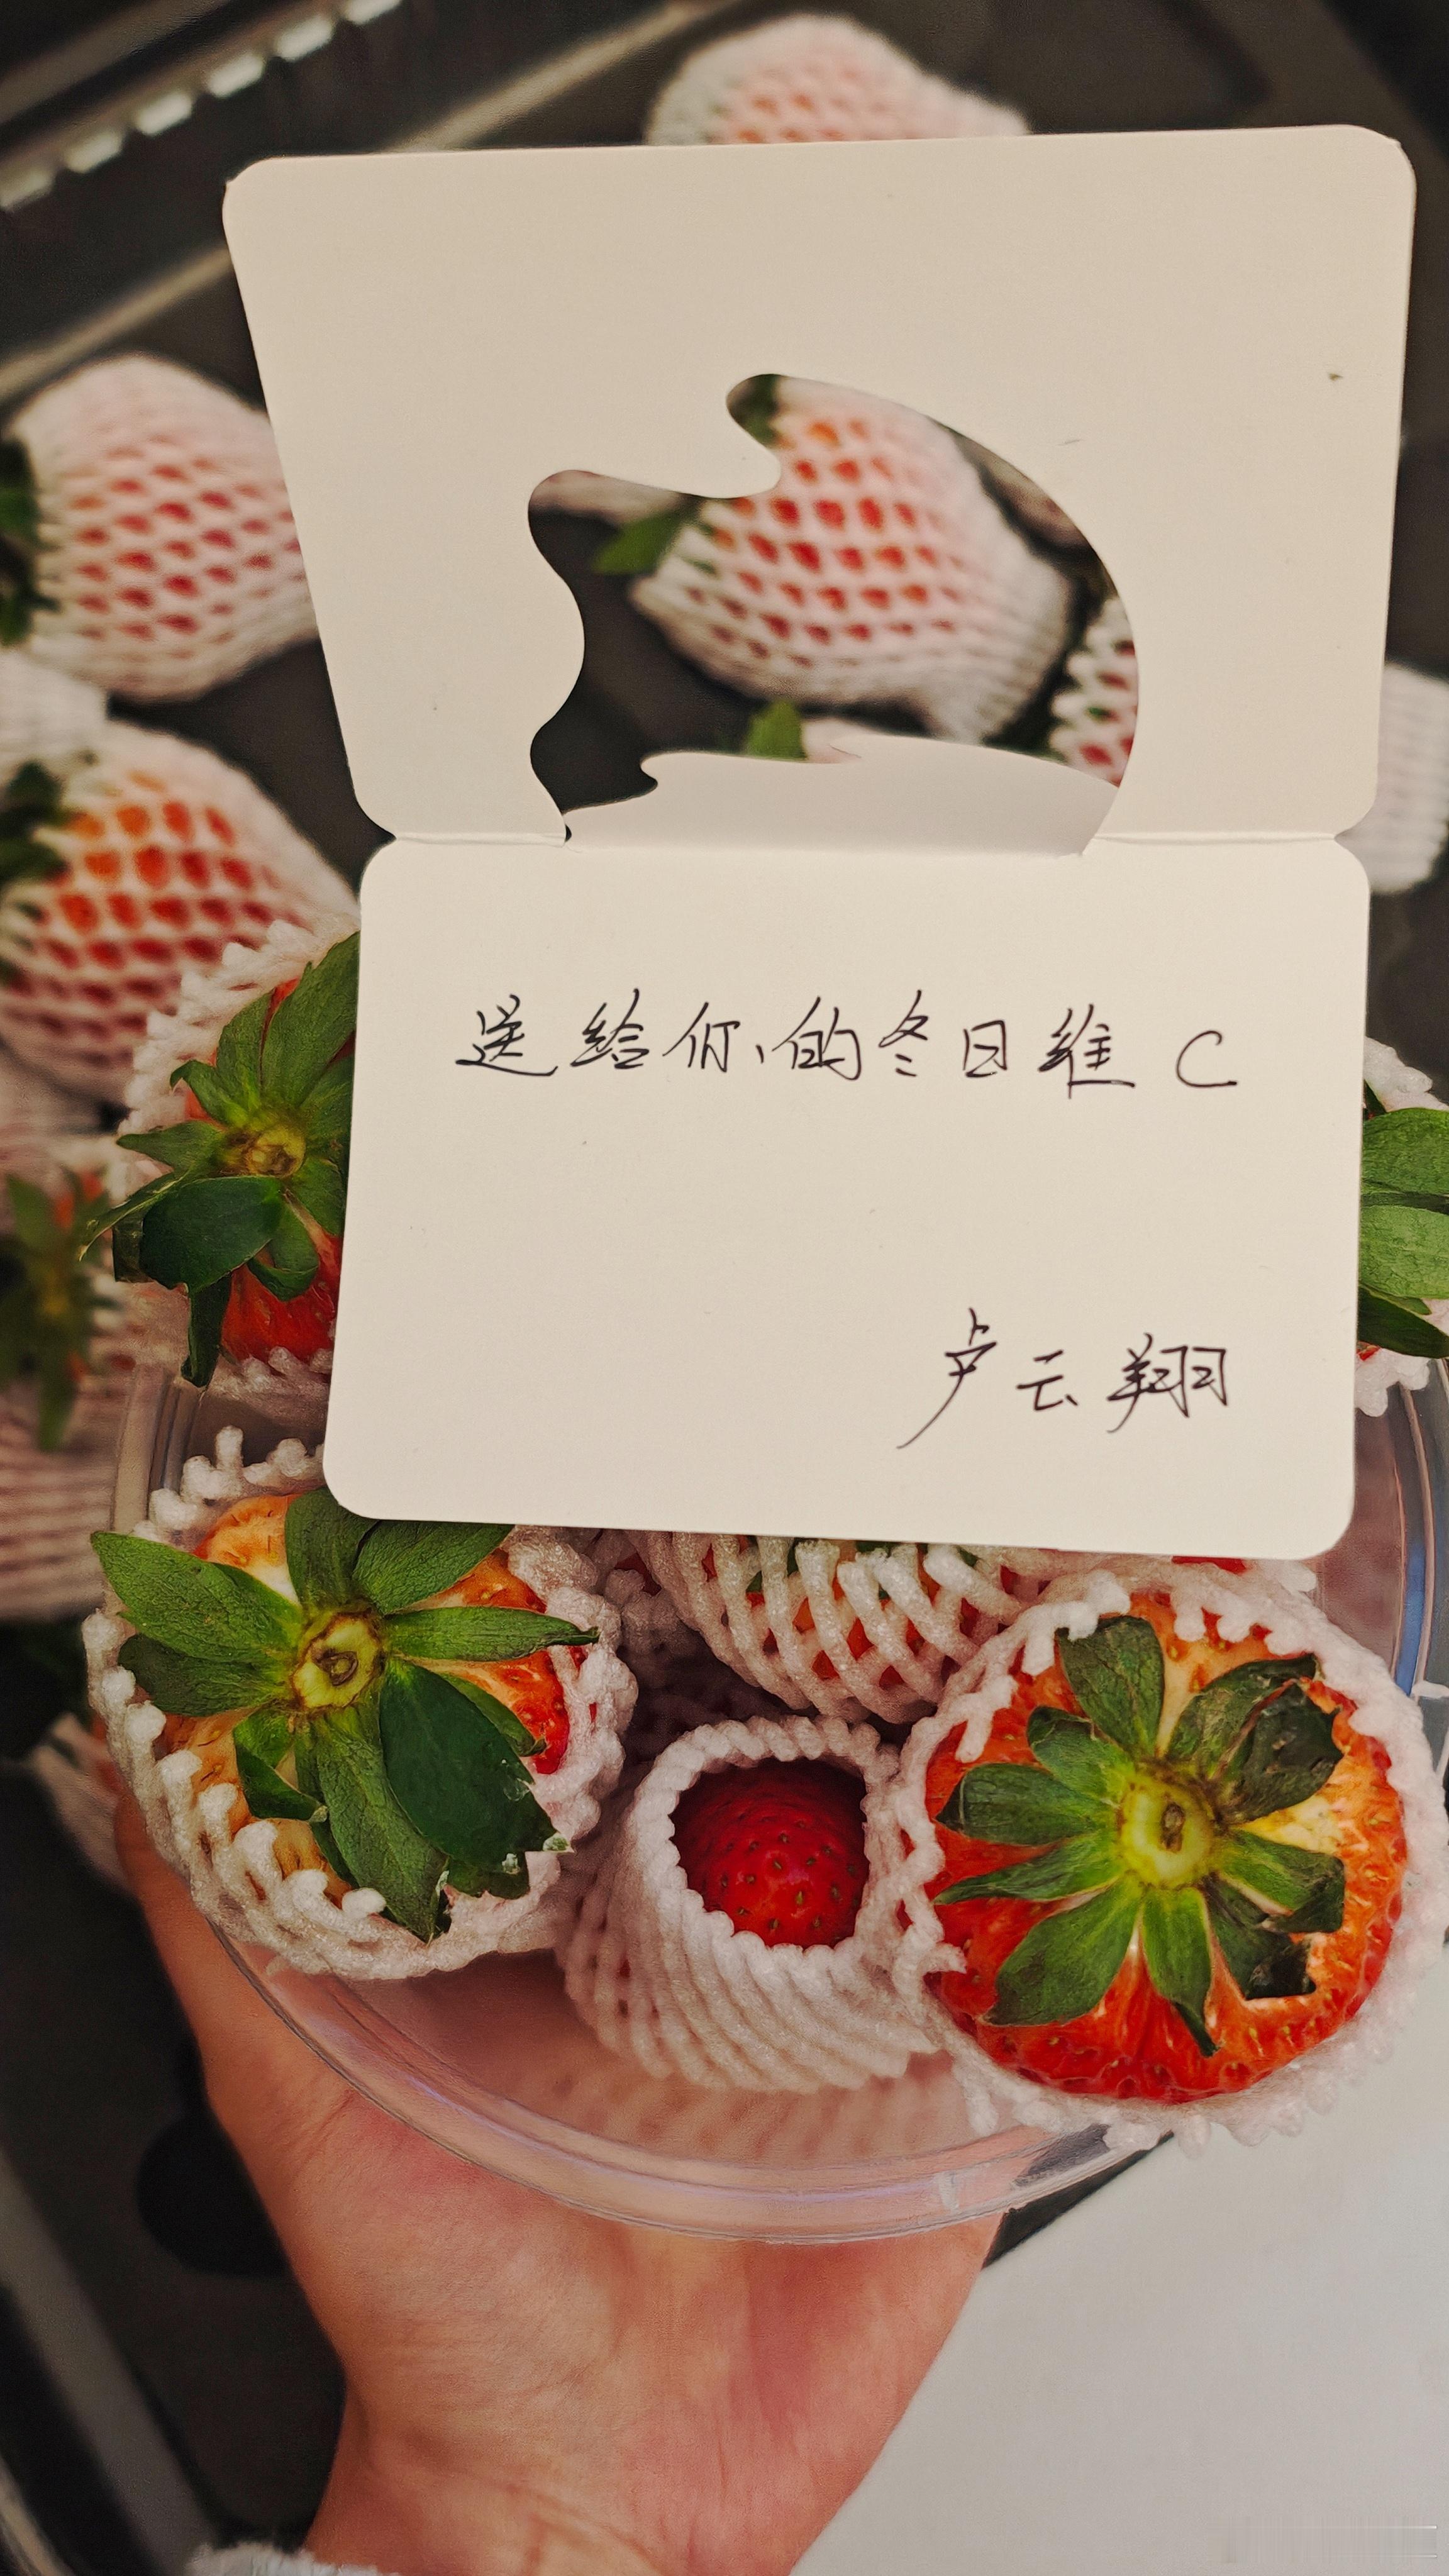 送给你的冬日维C
卢云翔